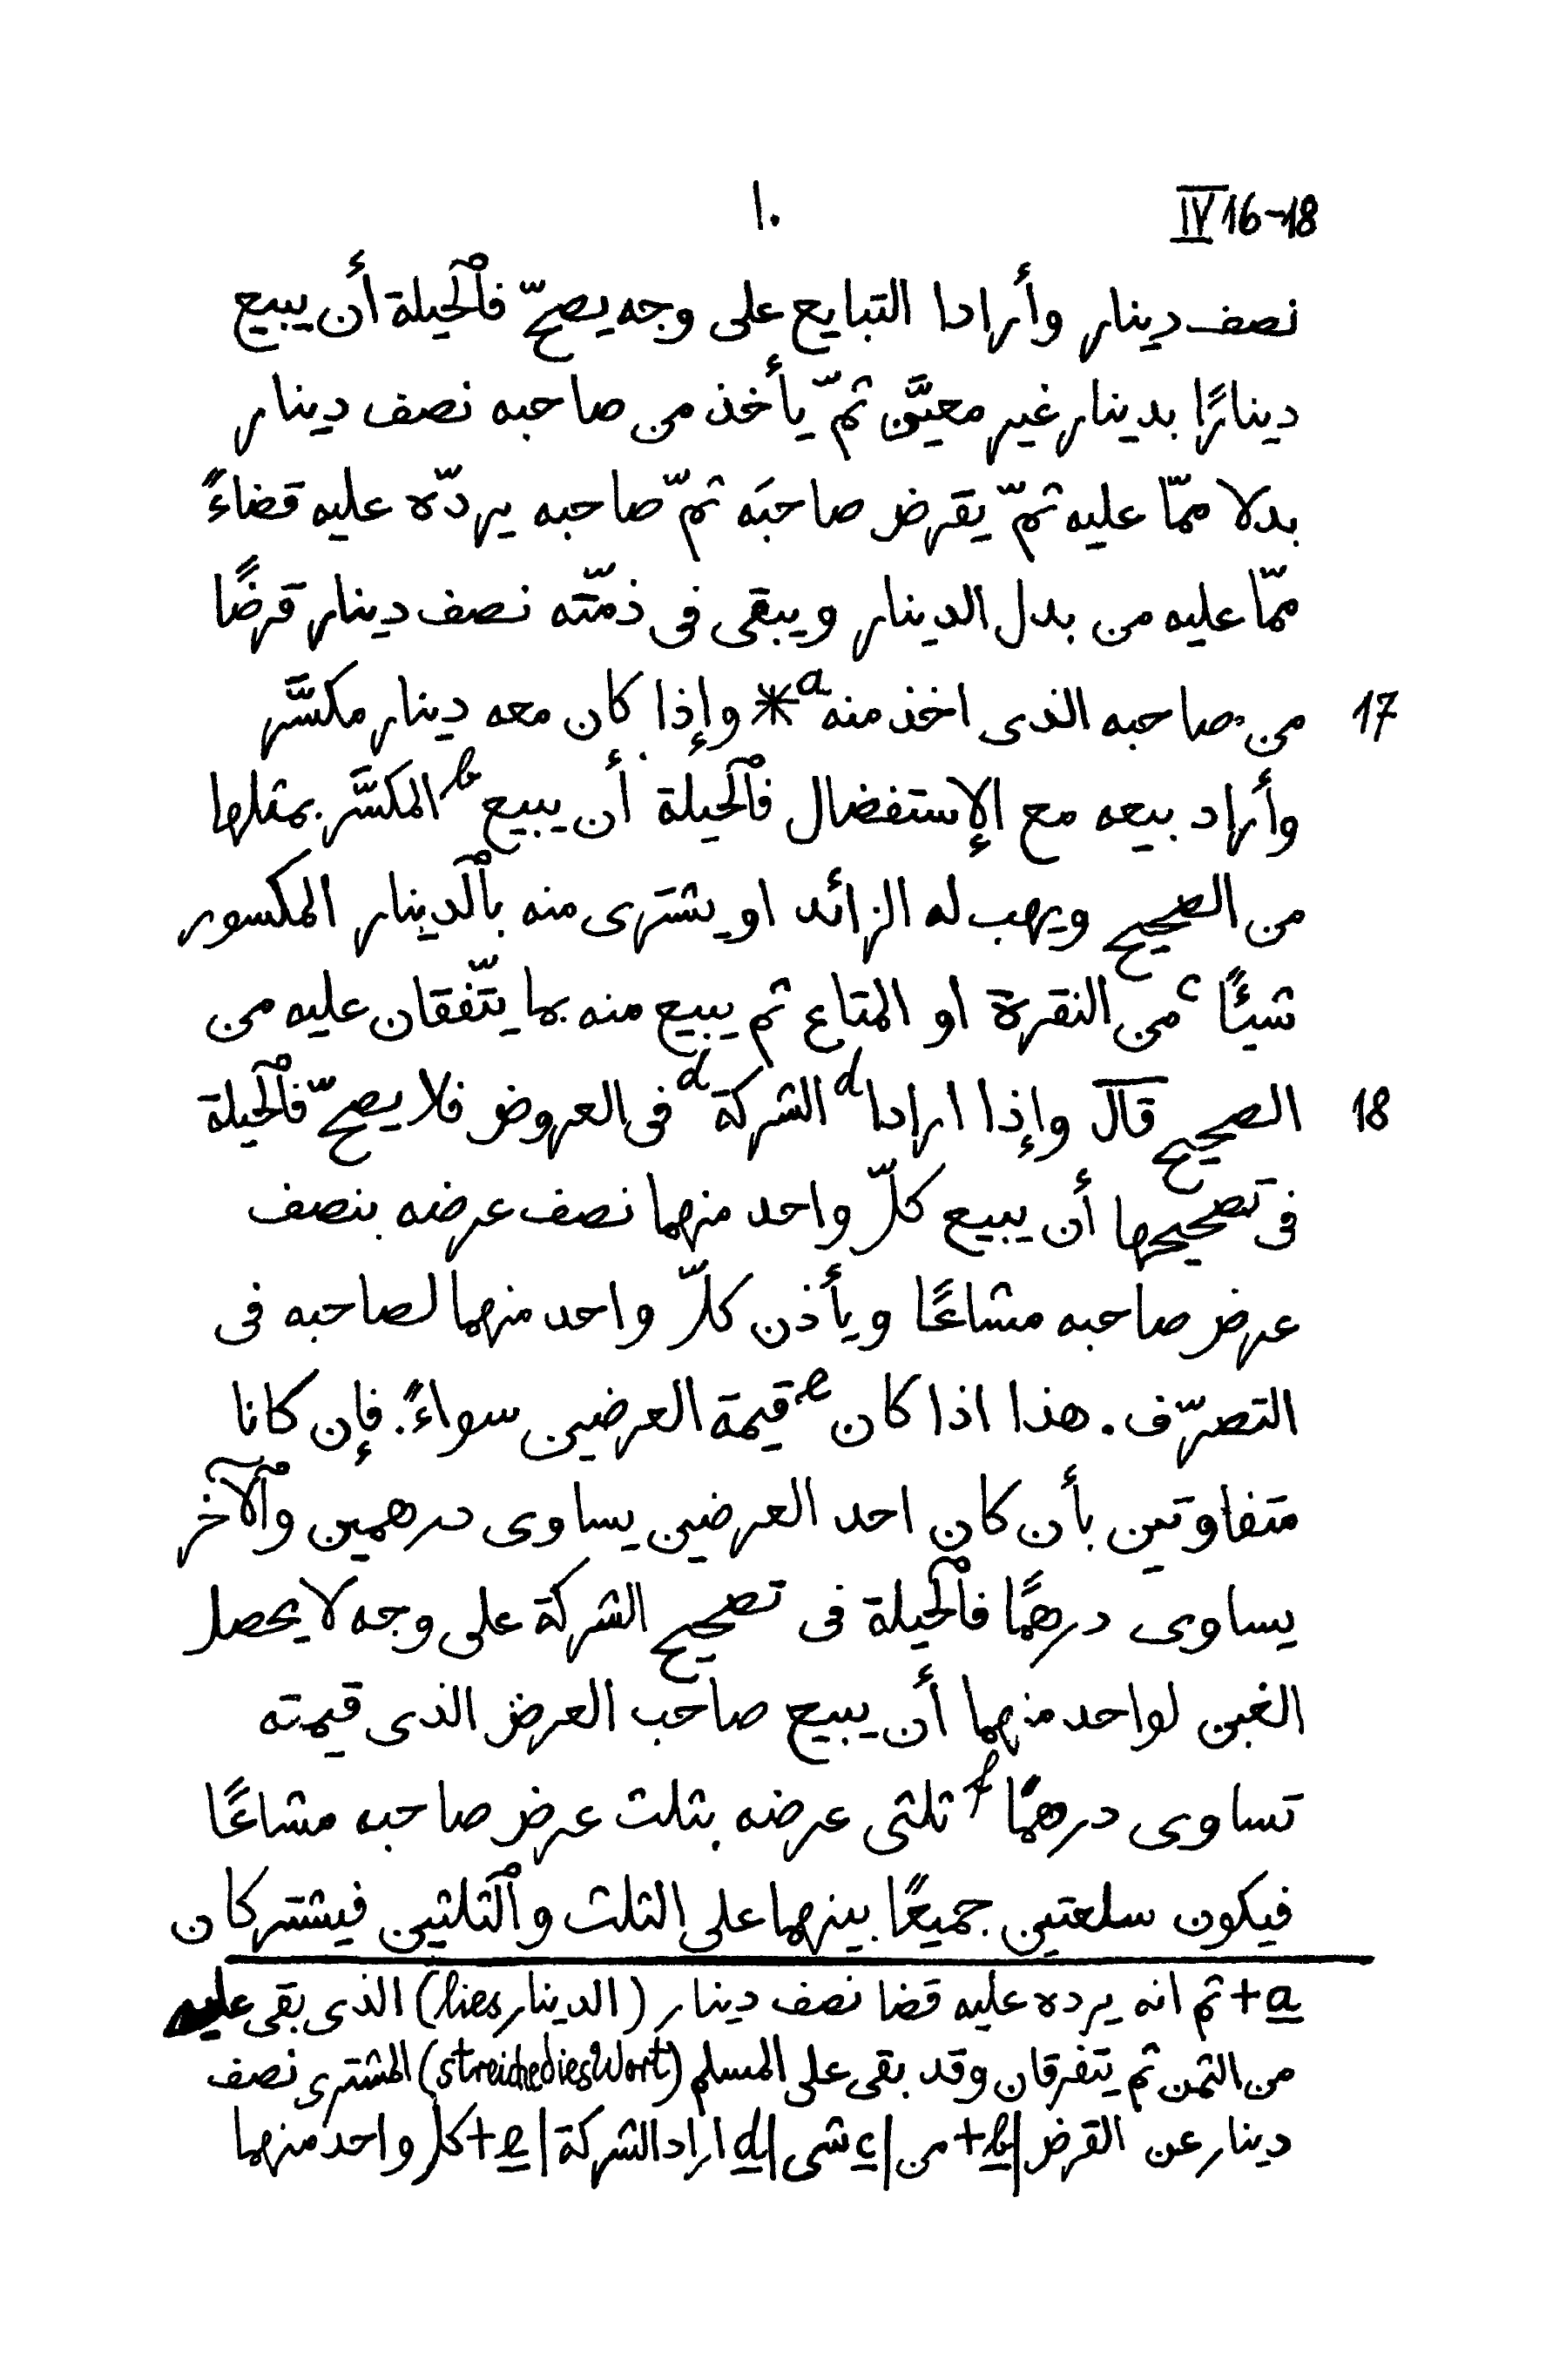 IV 16-18 ١٠
نصف دينار وأرادا التبايع على وجه يصحّ فٱلحيلة أن يبيع
دينارًا بدينار غير معيَّن ثمّ يأخذ من صاحبه نصف دينار
بدلا ممّا عليه ثمّ يقرض صاحبَه ثمّ صاحبه يردّه عليه قضاءً
ممّا عليه من بدل الدينار ويبقى فى ذمّته نصف دينار قرضًا
17 من صاحبه الذى اخذ منه a* وإذا كان معه دينار مكسَّر
وأراد بيعه مع الإستفضال فٱلحيلة أن يبيع b المكسَّر بمثلها
من الصحيح ويهب له الزائد او يشترى منه بٱلدينار المكسور
شيئًا c من النقرة او المتاع ثم يبيع منه بما يتّفقان عليه من
18 الصحيح قال وإذا ارادا d الشركة d فى العروض فلا يصحّ فٱلحيلة
فى تصحيحها أن يبيع كلّ واحد منهما نصف عرضه بنصف
عرض صاحبه مشاعًا ويأذن كلّ واحد منهما لصاحبه فى
التصرّف. هذا اذا كان e قيمة العرضين سواءً. فإن كانا
متفاوتين بأن كان احد العرضين يساوى درهمين وٱلآخر
يساوى درهمًا فٱلحيلة فى تصحيح الشركة على وجه لا يحصل
الغبن لواحد منهما أن يبيع صاحب العرض الذى قيمته
تساوى درهمًا f ثلثى عرضه بثلث عرض صاحبه مشاعًا
فيكون سلعتين جميعًا بينهما على الثلث وٱلثلثين فيشتركان
a + ثم انه يرده عليه قضا نصف دينار (الدينار lies) الذى بقى عليه
من الثمن ثم يتفرقان وقد بقى على المسلم (streiche dies Wort) المشترى نصف
دينار عن القرض | b + من | c شى | d اراد الشركة | e + كل واحد منهما